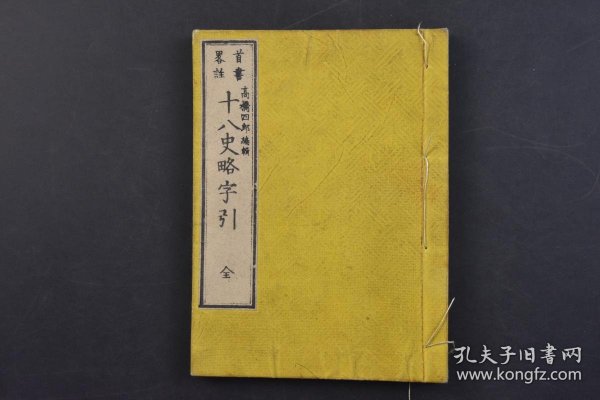 首書
畧註
高橋四郎編輯
十八史略字引
全
孔夫子旧书网
www.kongfz.com